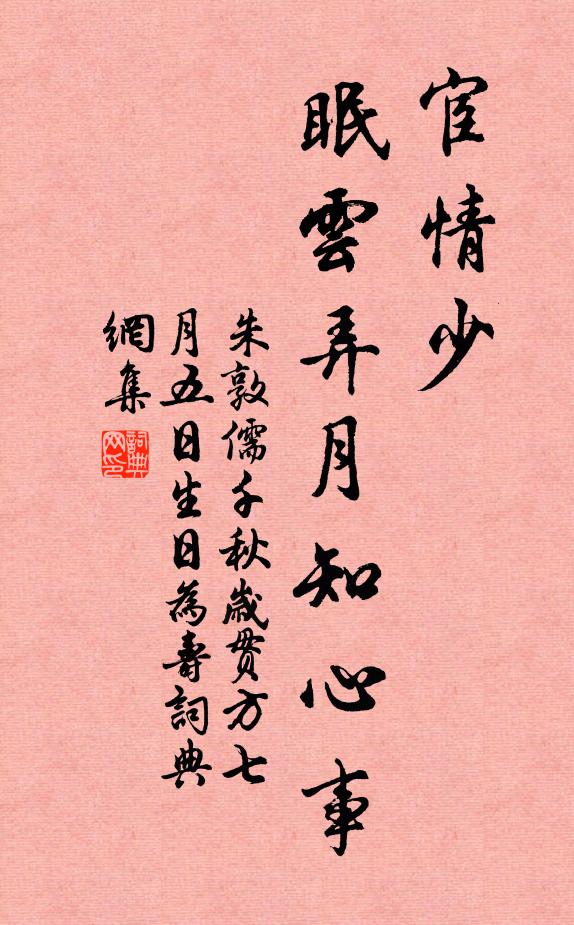 宦情少
眠雲弄月知心事
朱敦儒千秋歲貫方七
月五日生日為壽詞典
網集
詞典
网印